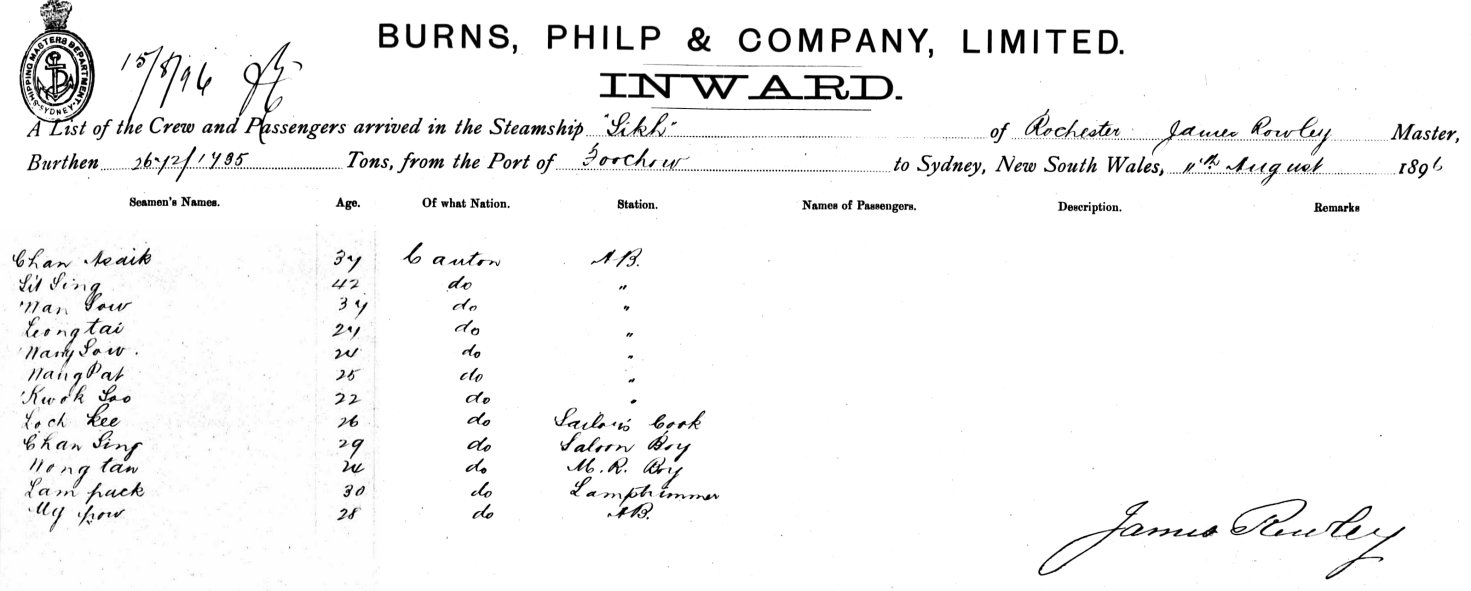 SHIPPING MASTERS DEPARTMENT SYDNEY
15/8/96
BURNS, PHILP & COMPANY, LIMITED.
INWARD.
A List of the Crew and Passengers arrived in the Steamship "Sikh" of Rochester James Rowley Master,
Burthen 2672/1735 Tons, from the Port of Foochow to Sydney, New South Wales, 11th August 1896
Seamen's Names. Age. Of what Nation. Station. Names of Passengers. Description. Remarks
Chan Asaik 37 Canton A.B.
Sit Sing 42 do "
Wan Sow 37 do "
Leong tai 27 do "
Wang Sow. 24 do "
Wang Pat 25 do "
Kwok Soo 22 do "
Loch Kee 26 do Sailor's Cook
Chan Sing 29 do Saloon Boy
Wong tan 24 do M. R. Boy
Lam pack 30 do Lamptrimmer
Ug pow 28 do A.B.
James Rowley